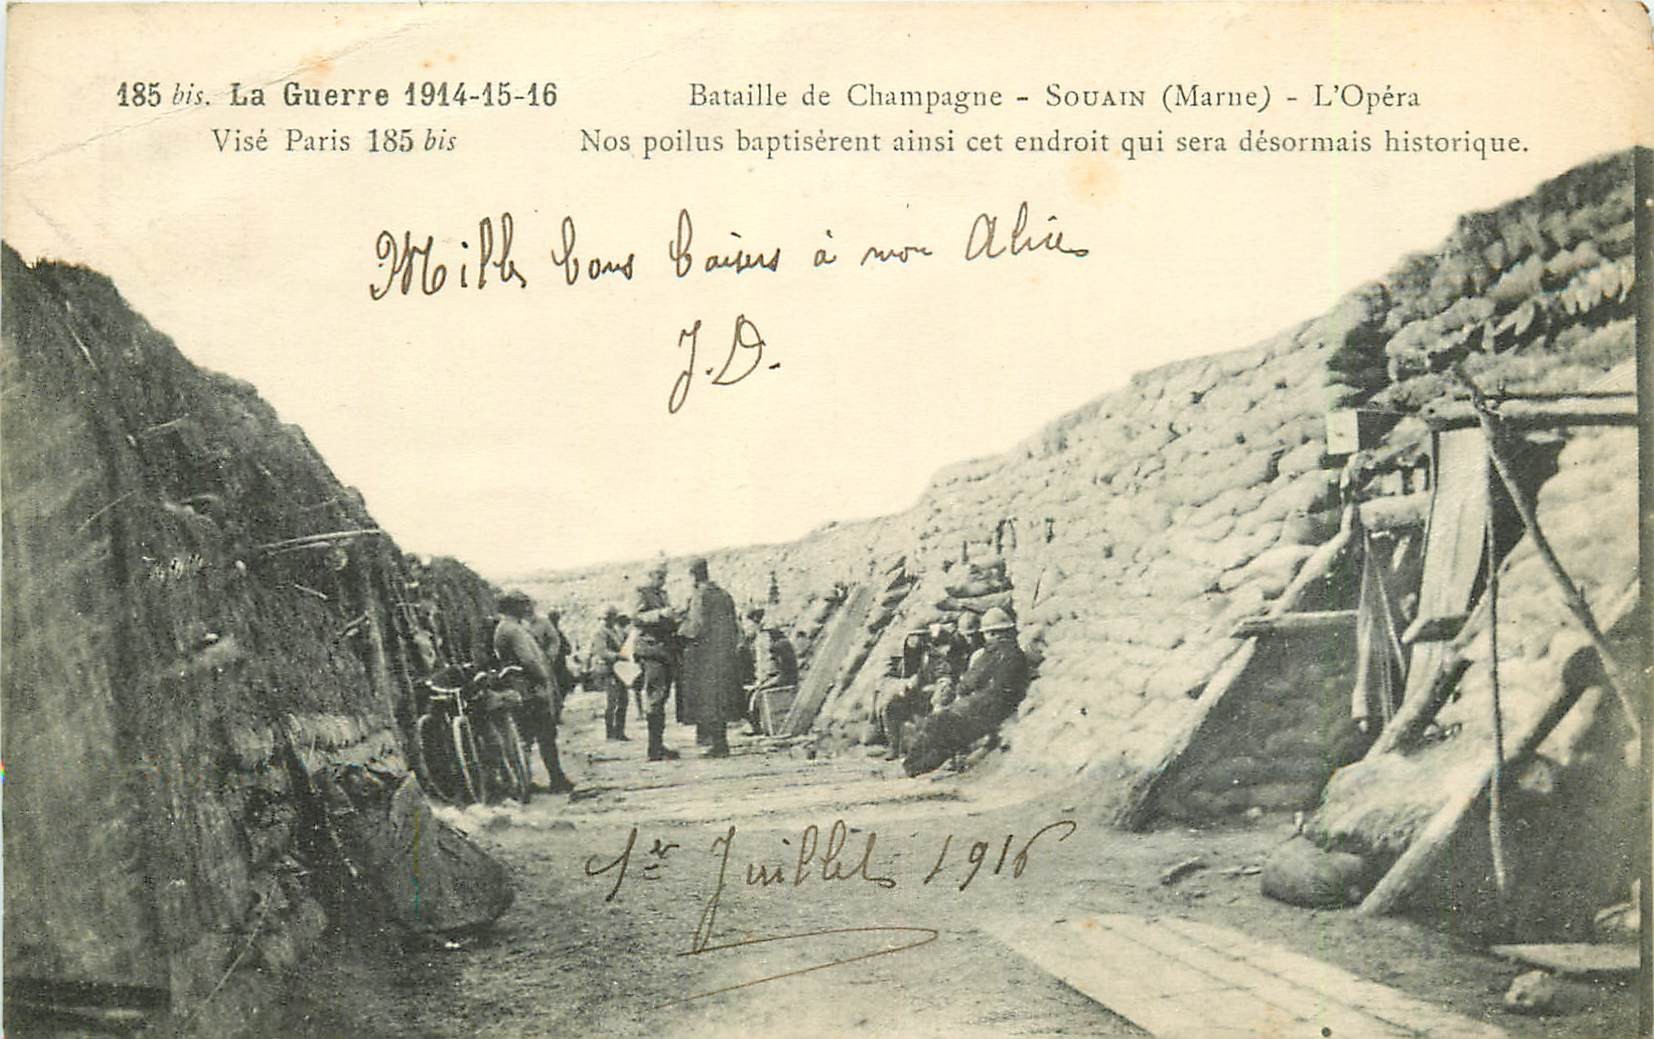 185 bis. La Guerre 1914-15-16
Visé Paris 185 bis
Bataille de Champagne - SOUAIN (Marne) - L'Opéra
Nos poilus baptisèrent ainsi cet endroit qui sera désormais historique.
Mille bons baisers à mon Alice
J.D.
1er Juillet 1916